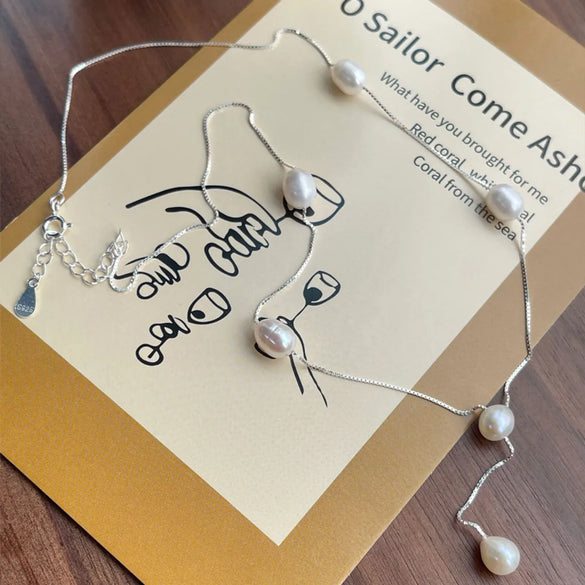 O Sailor Come Asho
What have you brought for me
Red coral, whi al
Coral from the sea